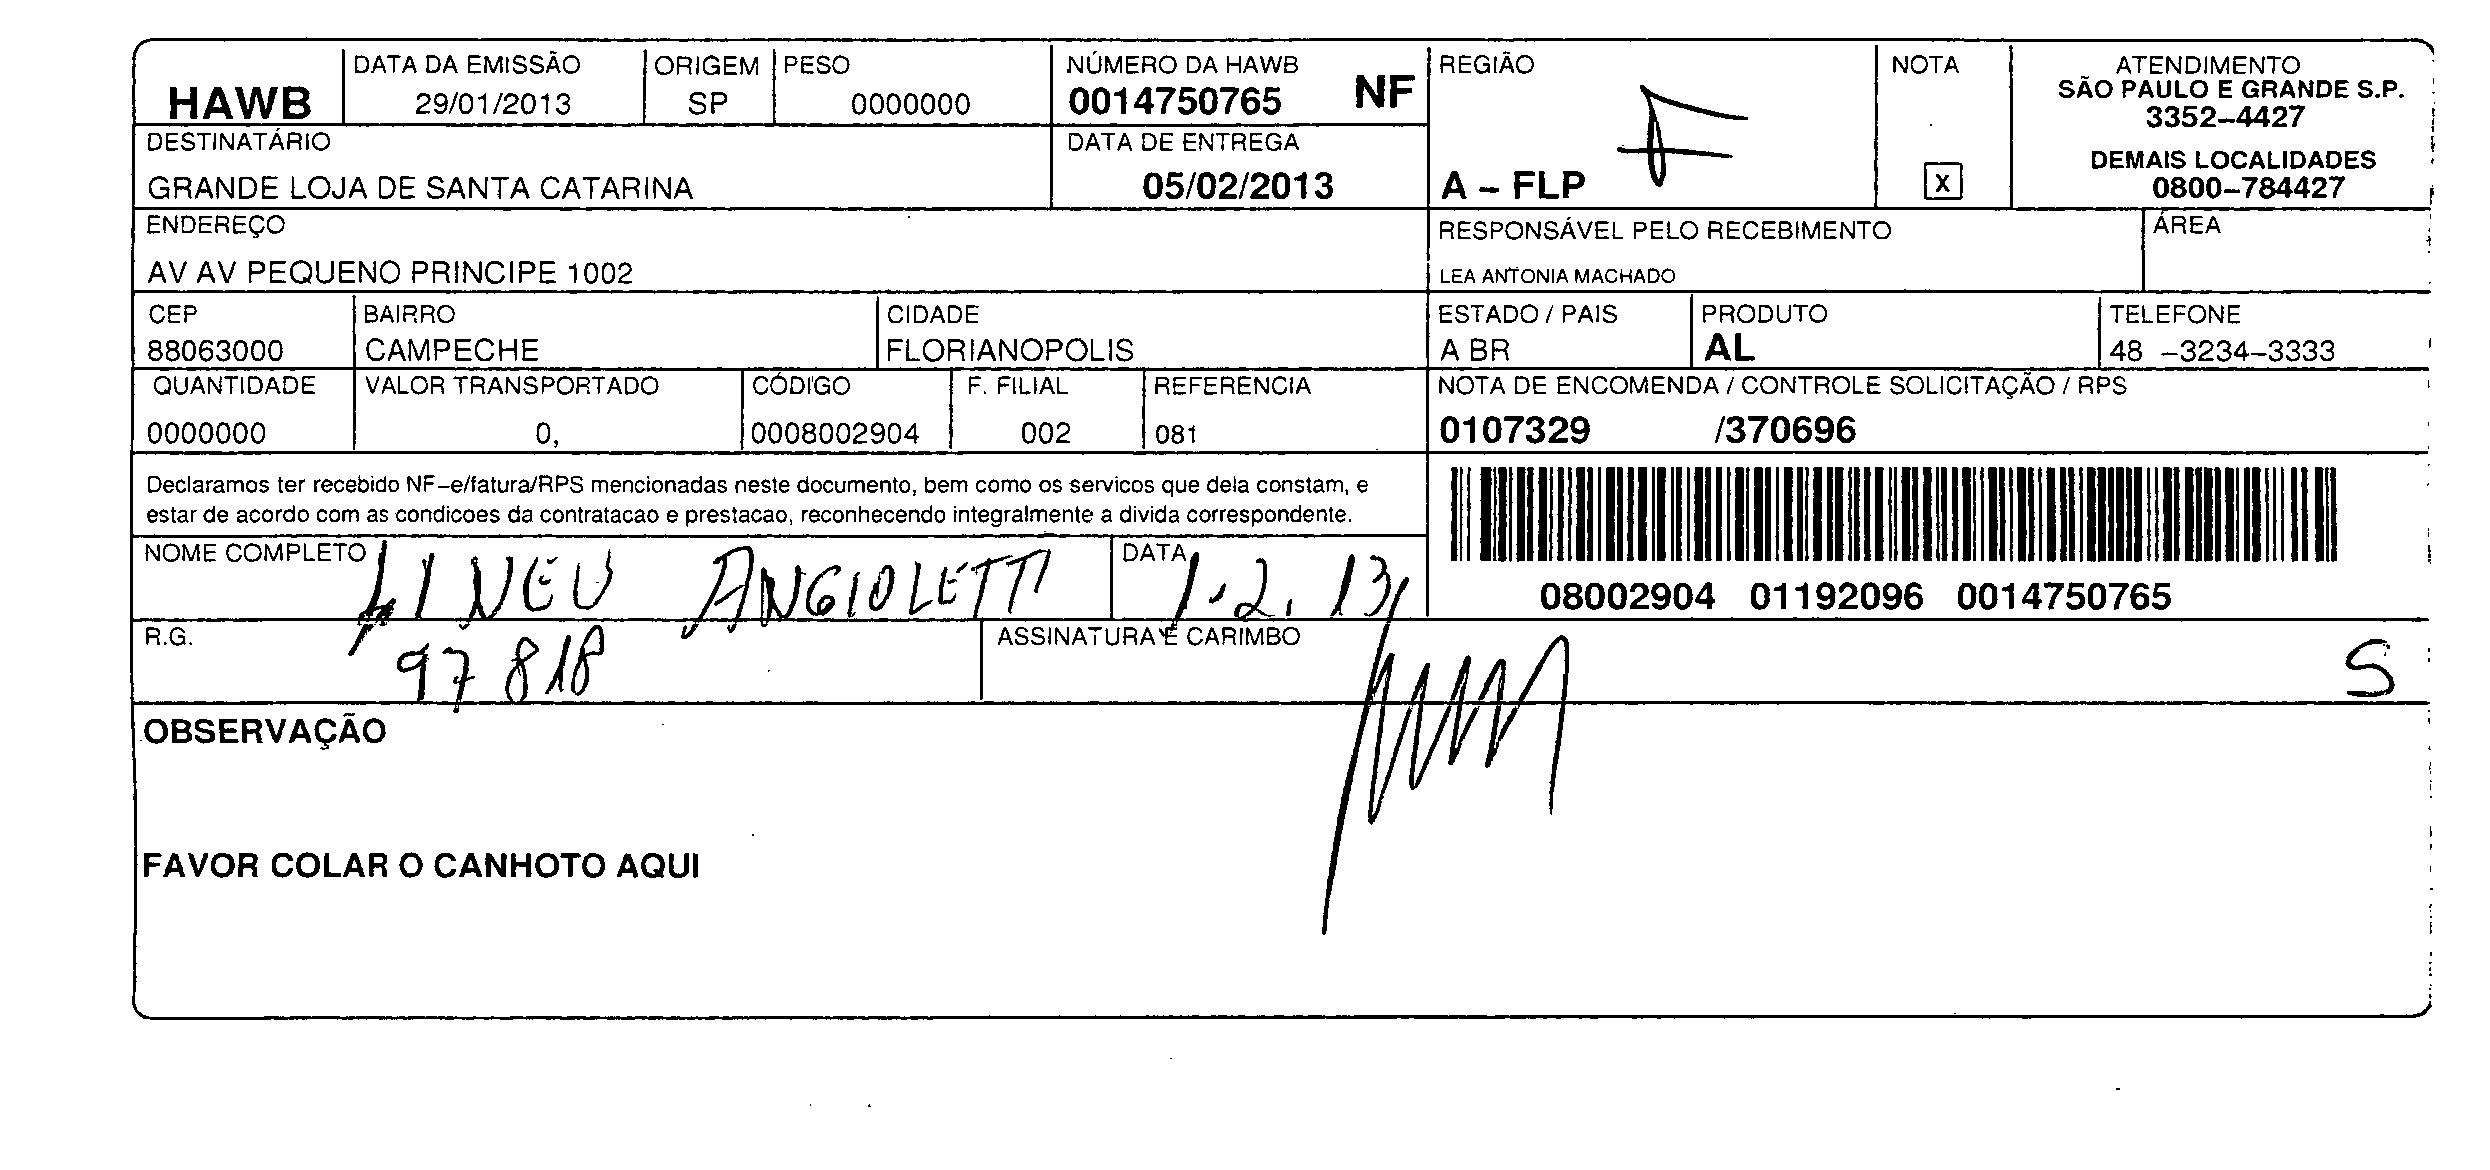 HAWB
DATA DA EMISSÃO
29/01/2013
ORIGEM
SP
PESO
0000000
NÚMERO DA HAWB
0014750765 NF
REGIÃO
A – FLP
NOTA
X
ATENDIMENTO
SÃO PAULO E GRANDE S.P.
3352–4427
DEMAIS LOCALIDADES
0800–784427
DESTINATÁRIO
GRANDE LOJA DE SANTA CATARINA
DATA DE ENTREGA
05/02/2013
ENDEREÇO
AV AV PEQUENO PRINCIPE 1002
RESPONSÁVEL PELO RECEBIMENTO
LEA ANTONIA MACHADO
ÁREA
CEP
88063000
BAIRRO
CAMPECHE
CIDADE
FLORIANOPOLIS
ESTADO / PAIS
A BR
PRODUTO
AL
TELEFONE
48 –3234–3333
QUANTIDADE
0000000
VALOR TRANSPORTADO
0,
CÓDIGO
0008002904
F. FILIAL
002
REFERENCIA
081
NOTA DE ENCOMENDA / CONTROLE SOLICITAÇÃO / RPS
0107329 /370696
Declaramos ter recebido NF–e/fatura/RPS mencionadas neste documento, bem como os servicos que dela constam, e
estar de acordo com as condicoes da contratacao e prestacao, reconhecendo integralmente a divida correspondente.
08002904 01192096 0014750765
NOME COMPLETO
LINEU ANGIOLETTI
DATA
1.2.13
R.G.
97818
ASSINATURA E CARIMBO
S
OBSERVAÇÃO
FAVOR COLAR O CANHOTO AQUI